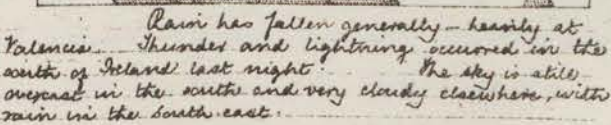 Rain has fallen generally - heavily at
Valencia. Thunder and lightning occurred in the
south of Ireland last night. The sky is still
overcast in the south and very cloudy elsewhere, with
rain in the south east.